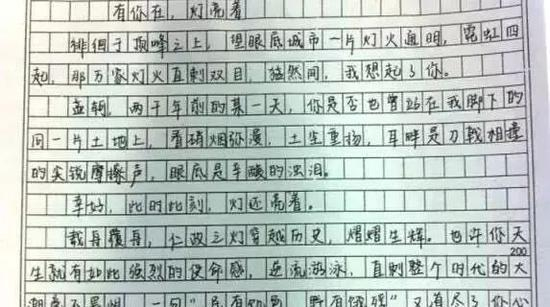 有你在，灯亮着
徘徊于顶峰之上，望眼底城市一片灯火通明，霓虹四
起，那万家灯火直刺双目，猛然间，我想起了你。
孟轲，两千年前的某一天，你是否也曾站在我脚下的
同一片土地上，看硝烟弥漫，土尘重扬，耳畔是刀戟相撞
的尖锐摩擦声，眼底是辛酸的浊泪。
幸好，此时此刻，灯还亮着。
载舟覆舟，仁政之灯穿越历史，熠熠生辉。也许你天
200
生就有如此强烈的使命感，逆流游泳，直刺整个时代的大